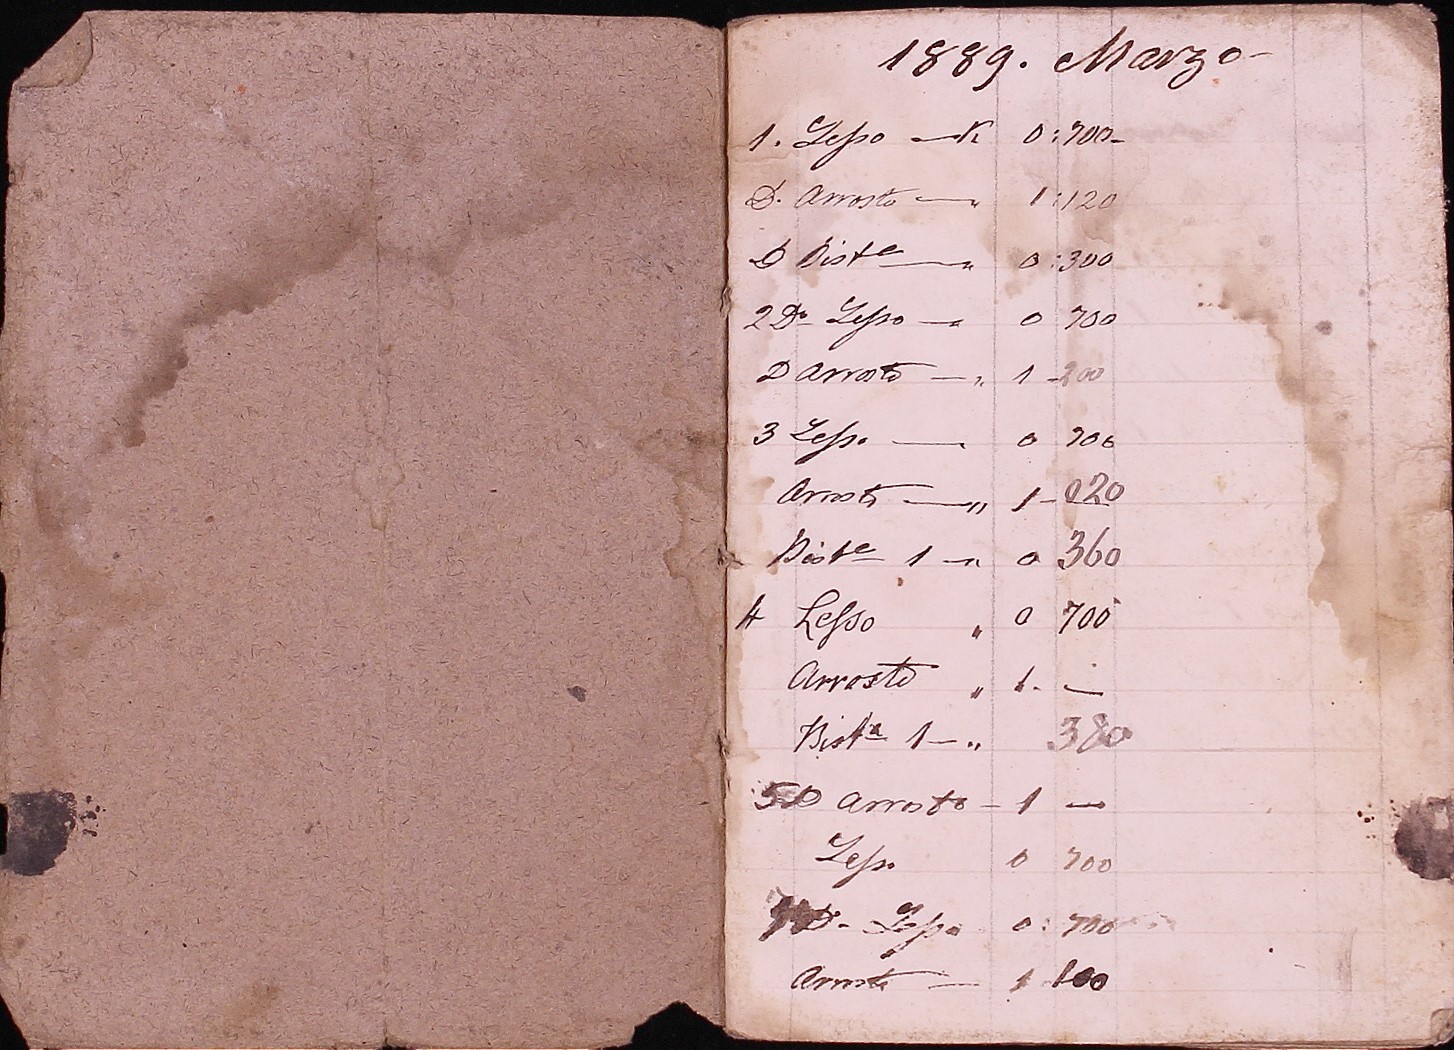 1889. Marzo
1. Lesso — K 0:700-
D. Arrosto — „ 1:120
D Bist.a — „ 0:300
2 Do Lesso — „ 0 700
D Arrosto — „ 1 - 200
3 Lesso — „ 0 700
Arrosto — „ 1 - 020
Bist.a 1 — „ 0 360
4 Lesso „ 0 700
Arrosto „ 1. —
Bist.a 1 — „ 380
5 D Arrosto - 1 —
Lesso 0 700
D. - Lesso 0: 700
Arrosto — 1 100